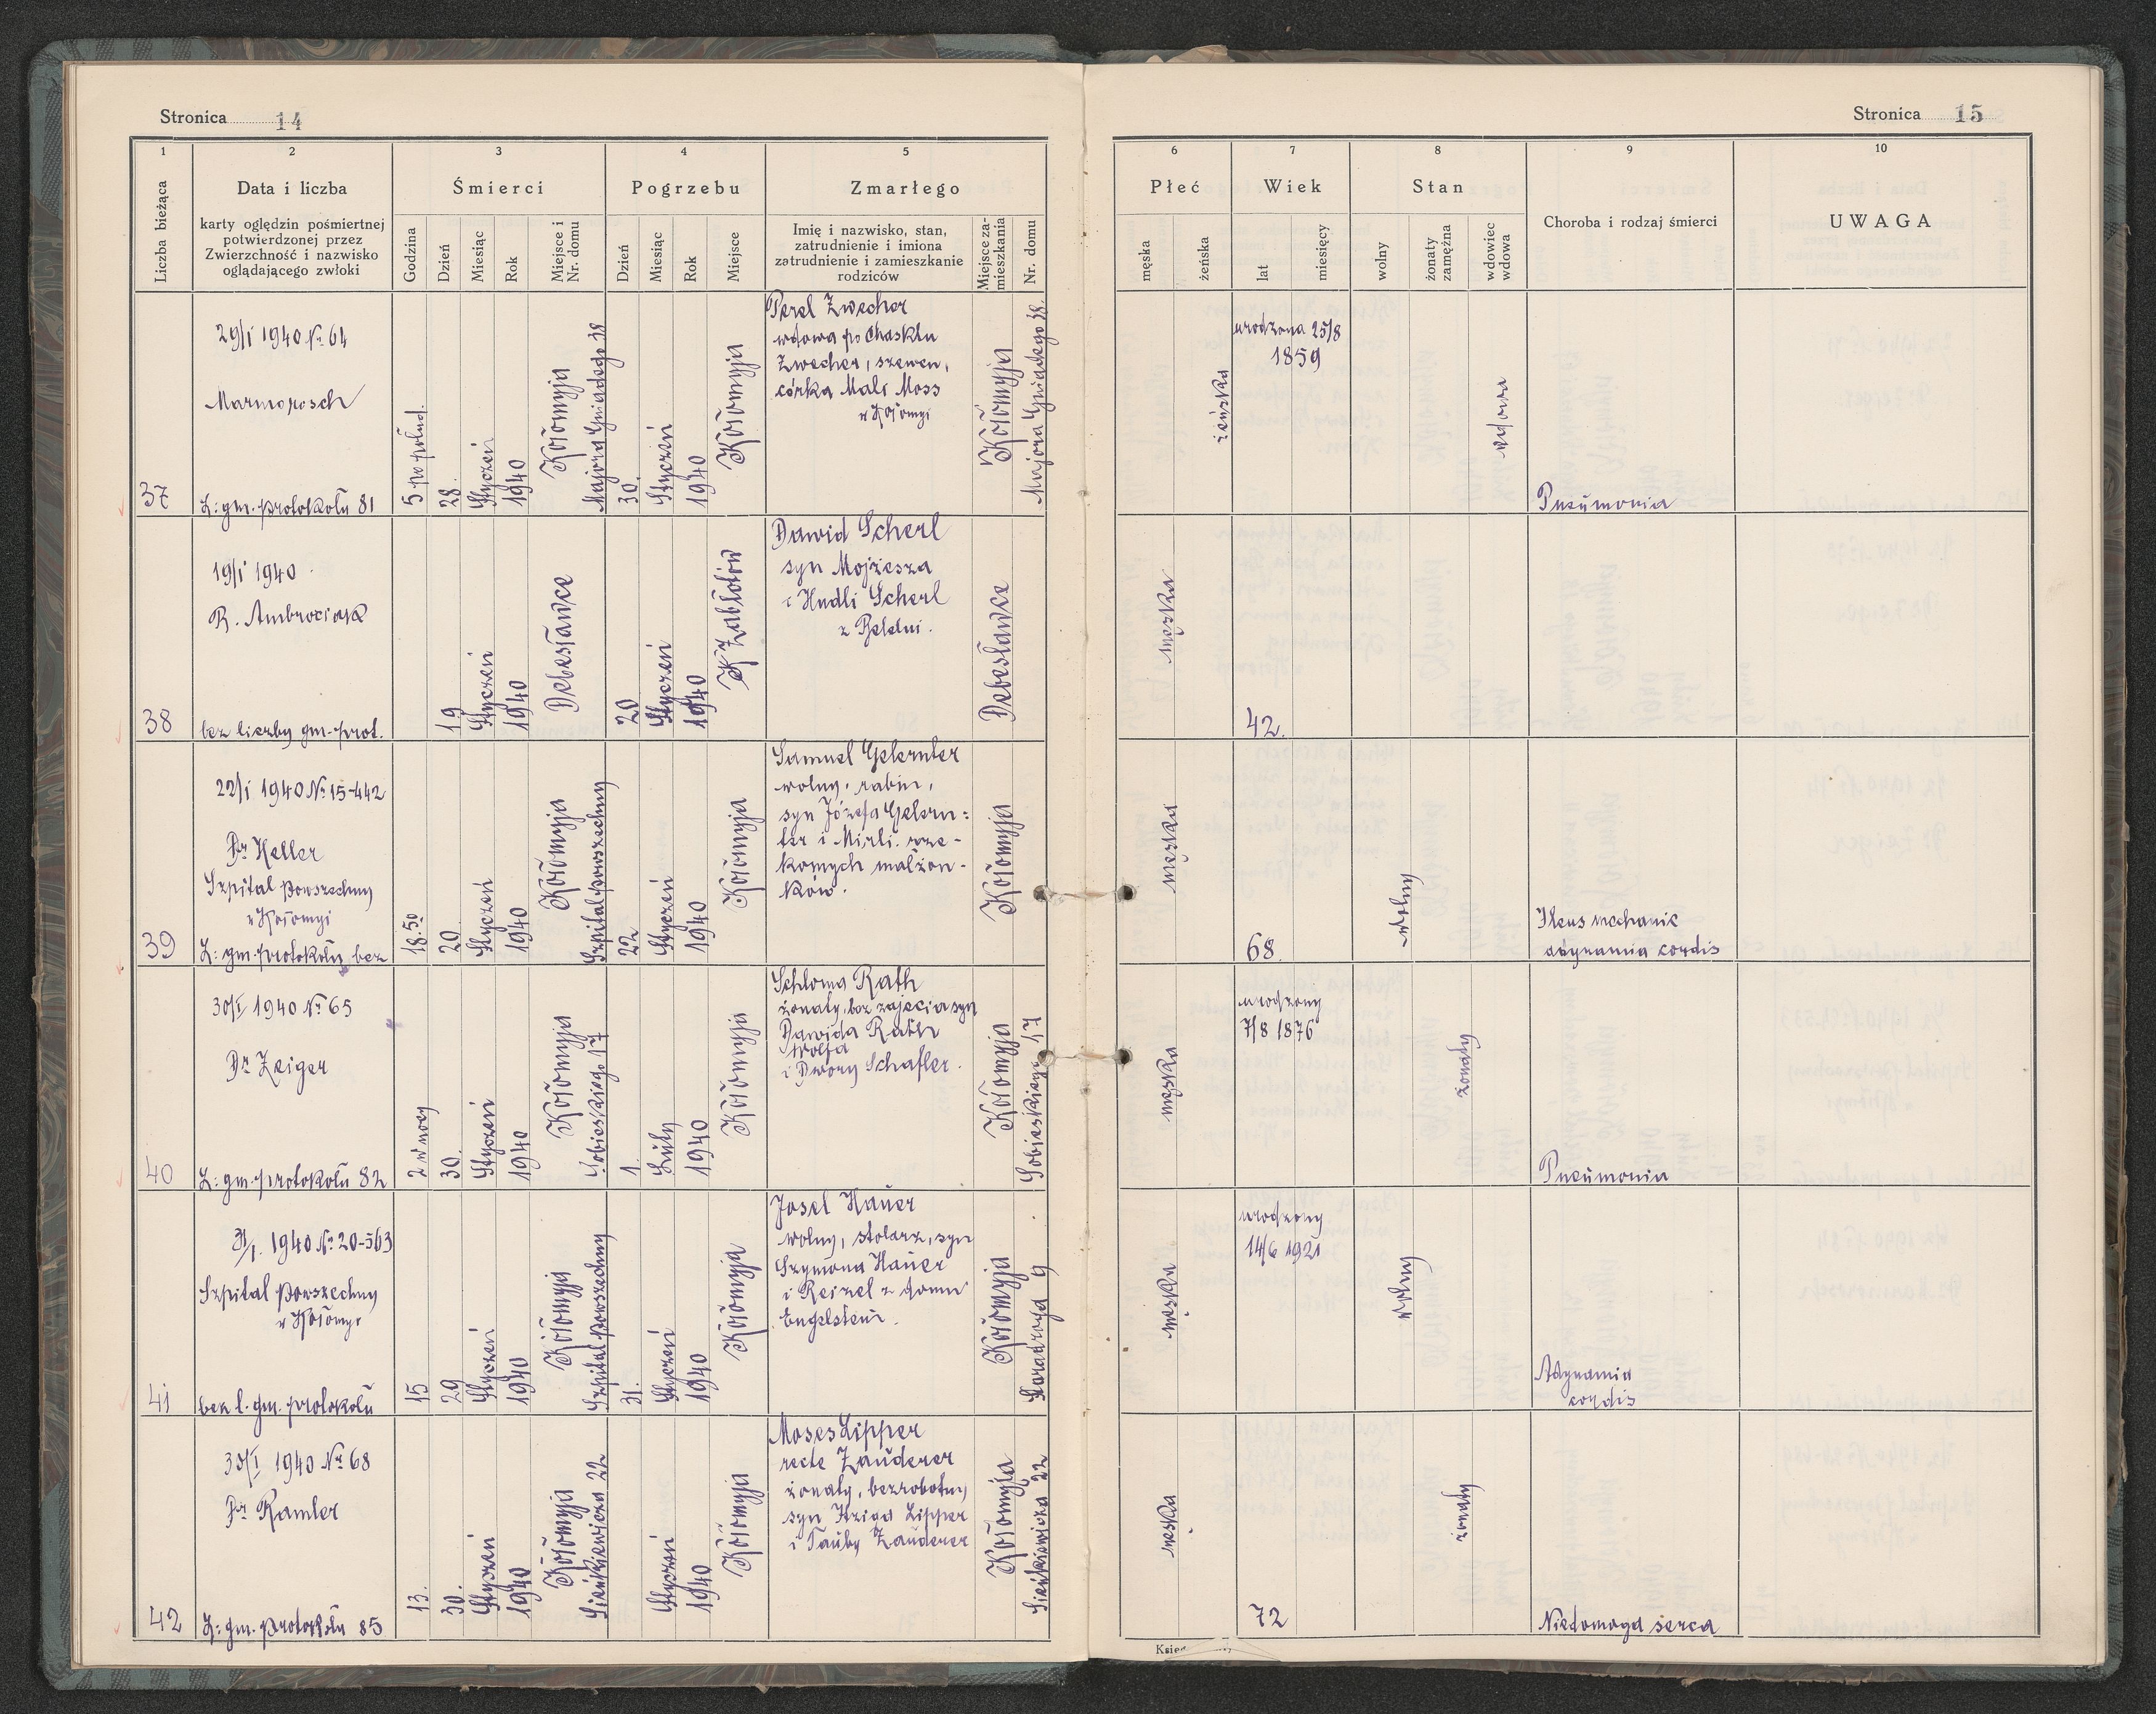 Stronica 14
1
2
3
4
5
Liczba bieżąca
Data i liczba
karty oględzin pośmiertnej
potwierdzonej przez
Zwierzchność i nazwisko
oglądającego zwłoki
Śmierci
Godzina
Dzień
Miesiąc
Rok
Miejsce i
Nr. domu
Pogrzebu
Dzień
Miesiąc
Rok
Miejsce
Zmarłego
Imię i nazwisko, stan,
zatrudnienie i imiona
zatrudnienie i zamieszkanie
rodziców
Miejsce za-
mieszkania
Nr. domu
37
29/I 1940 No 64
Marmorosch
L: gm. protokolu 81
5 po połud.
28.
Styczeń
1940
Kołomyja
Majora Gniadego 38
30.
Styczeń
1940
Kołomyja
Perel Zwecher
wdowa po Chasklu
Zwecher, szewcu,
córka Mali Moss
w Kołomyi
Kołomyja
Majora Gniadego 38.
38
19/I 1940
R. Ambrociak
bez liczby gm. prot.
19
Styczeń
1940
Debesławce
20
Styczeń
1940
Zabłotów
Dawid Scherl
syn Mojżesza
i Hudli Scherl
z Bełełui.
Debesławce
39
22/I 1940 No 15-442
Dr Heller
Szpital Powszechny
w Kołomyi
L: gm. protokolu, bez
18.50
20.
Styczeń
1940
Kołomyja
Szpital Powszechny
22.
Styczeń
1940
Kołomyja
Samuel Gelernter
wolny, rabin,
syn Józefa Gelern=
ter i Mirli. rze-
komych małżon-
ków.
Kołomyja
40
30/I 1940 No 65
Dr Zeiger
L: gm. protokolu 82
2 w nocy
30.
Styczeń
1940
Kołomyja
Sobieskiego 17
1.
Luty
1940
Kołomyja
Schloma Rath
żonaty, bez zajęcia syn
Dawida Rath
Wolfa
i Dwory Schafler.
Kołomyja
Sobieskiego 17
41
31/I. 1940 No 20-563
Szpital Powszechny
w Kołomyi
bez l. gm. protokolu
15
29
Styczeń
1940
Kołomyja
Szpital Powszechny
31.
Styczeń
1940
Kołomyja
Josel Hauer
wolny, stolarz, syn
Szymona Hauer
i Reizel z domu
Engelstein.
Kołomyja
9
42
30/I 1940 No 68
Dr Ramler
L: gm. protokolu 85
13.
30.
Styczeń
1940
Kołomyja
Sienkiewicza 22
Styczeń
1940
Kołomyja
Moses Lipper
recte Zauderer
żonaty, bezrobotny
syn Lipper
i Tauby Zauderer
Kołomyja
Sienkiewicza 22
Stronica 15
6
7
8
9
10
Płeć
męska
żeńska
Wiek
lat
miesięcy
Stan
wolny
żonaty
zamężna
wdowiec
wdowa
Choroba i rodzaj śmierci
UWAGA
żeńska
urodzona 25/8
1859
wdowa
Pneumonia
męska
42.
męska
68.
wolny
Ileus mechanic
adynamia cordis
męska
urodzony
7/8 1876
żonaty
Pneumonia
męska
urodzony
14/6 1921
wolny
Adynamia
cordis
męska
72
żonaty
Niedomoga serca